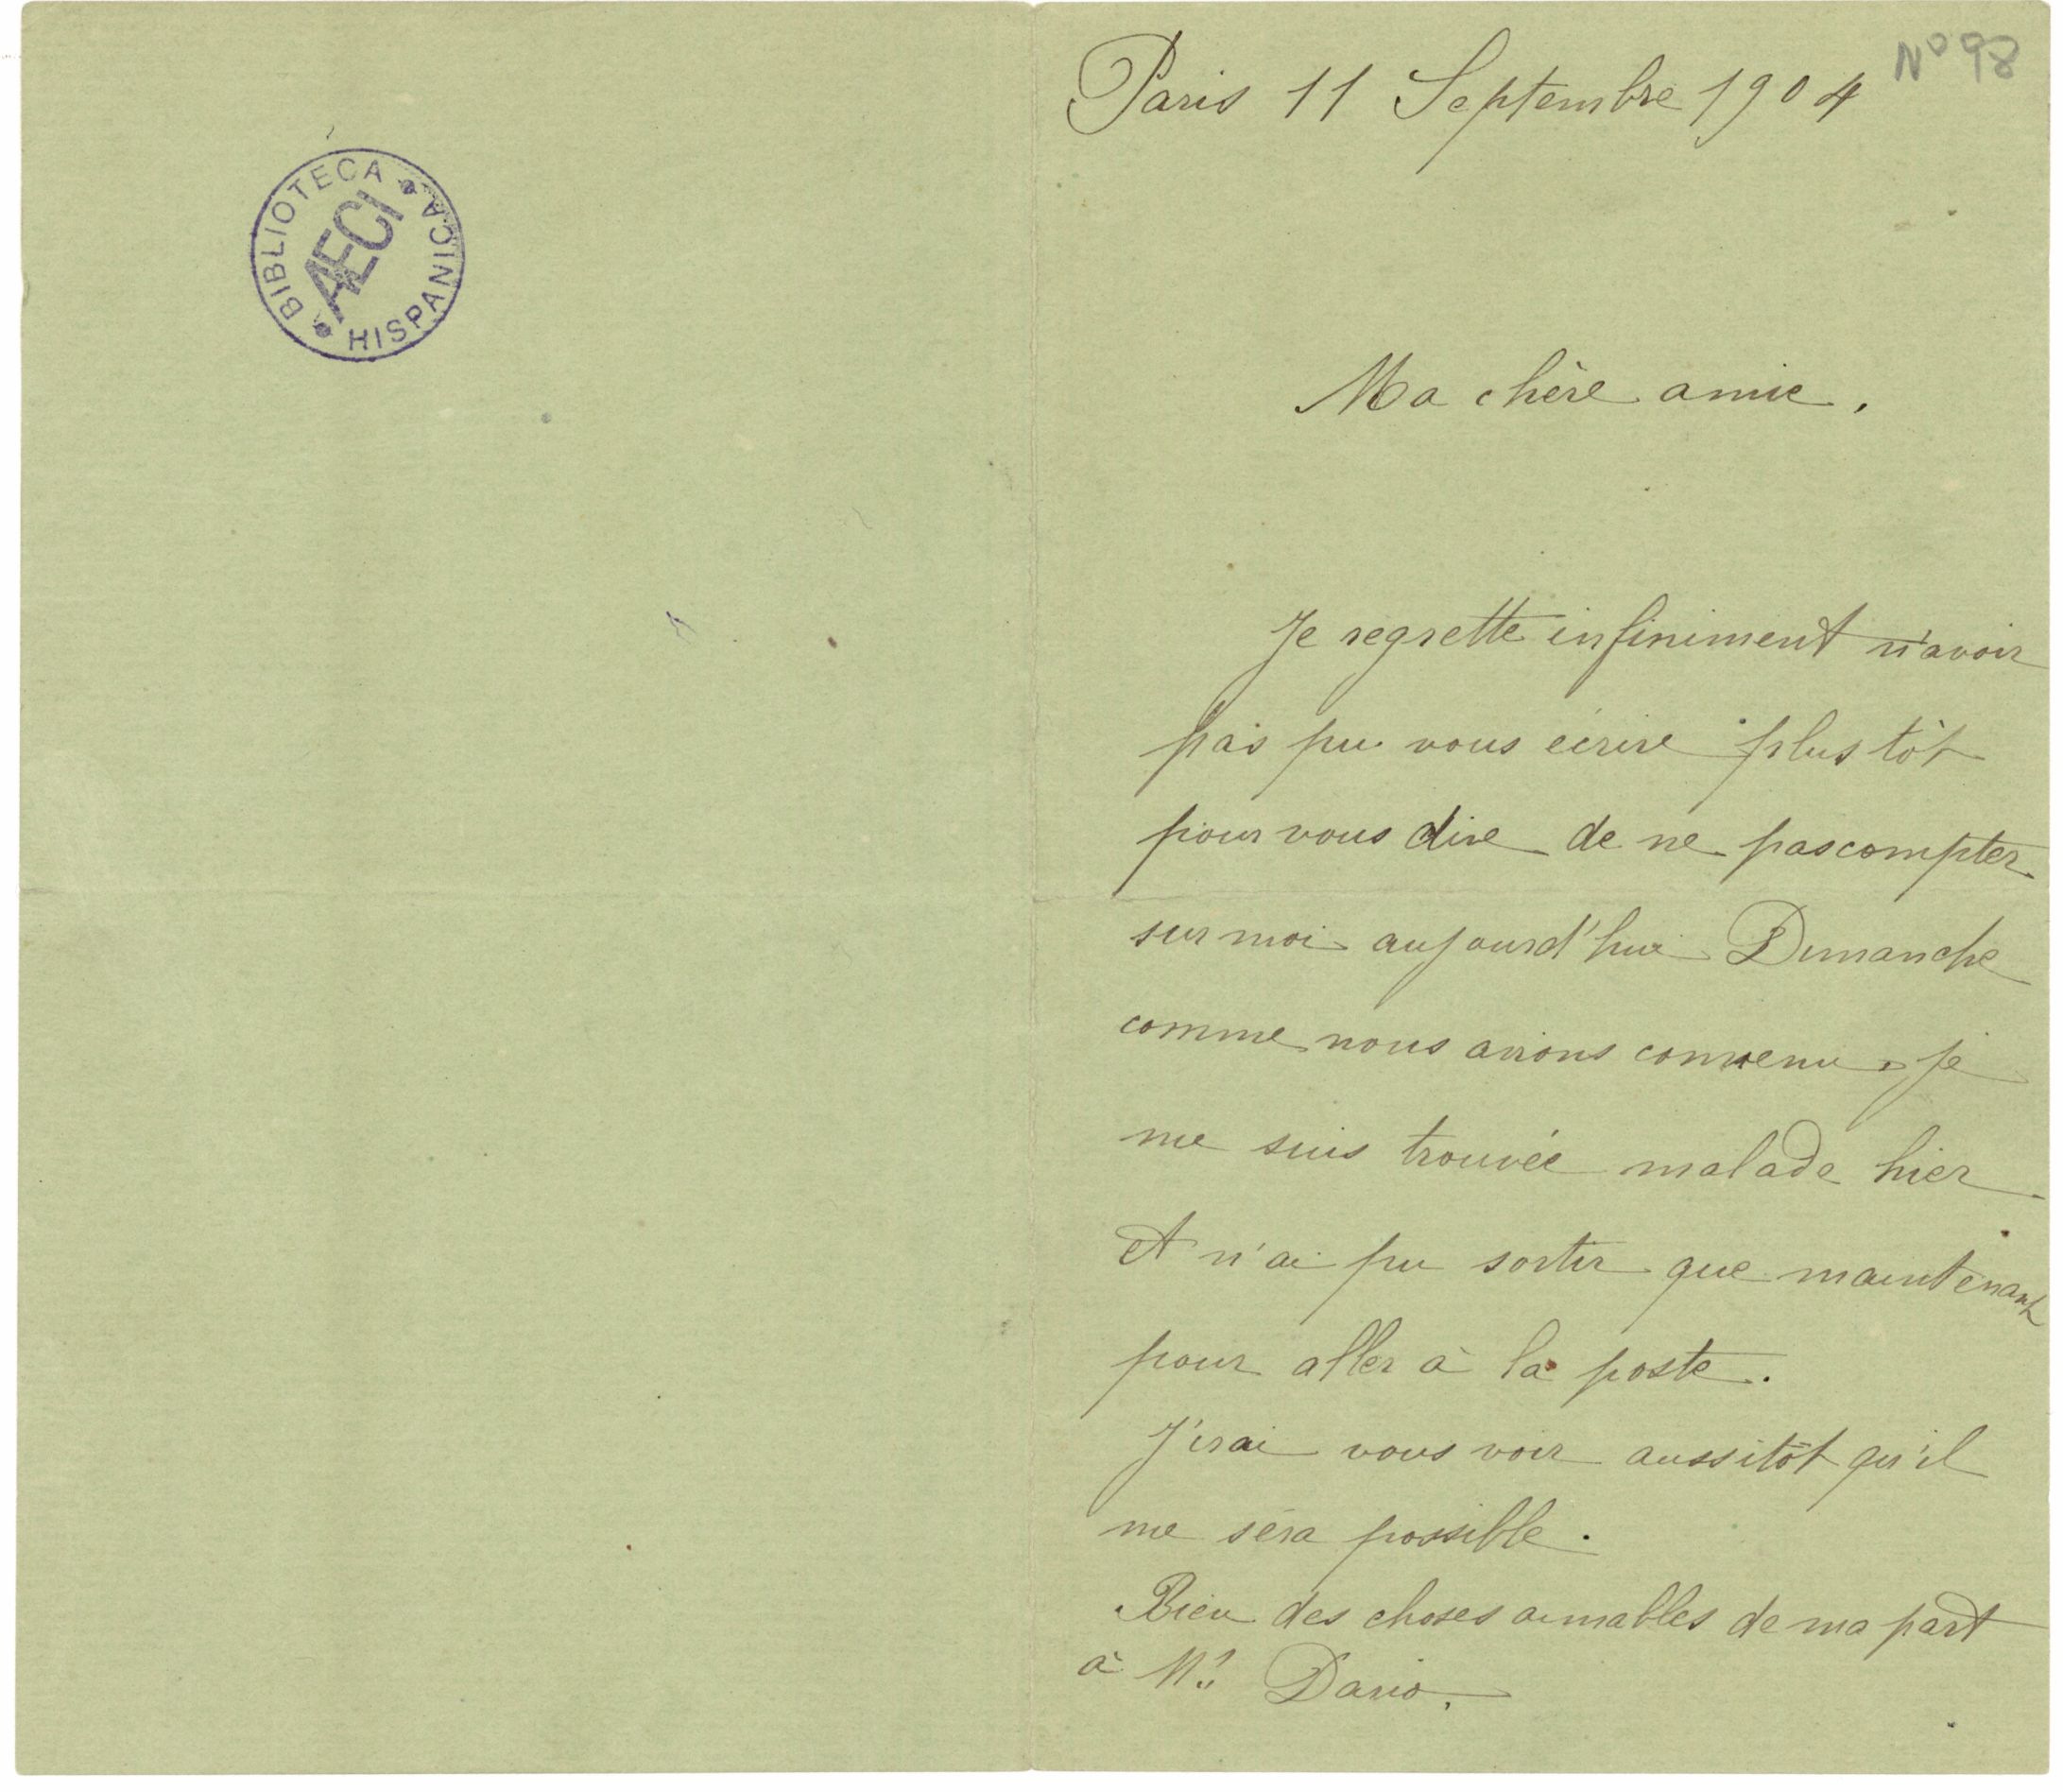 BIBLIOTECA HISPANICA
AECI
Nº 98
Paris 11 Septembre 1904
Ma chère amie.
Je regrette infiniment n'avoir
pas pu vous écrire plus tôt
pour vous dire de ne pas compter
sur moi aujourd'hui Dimanche
comme nous avions convenu, je
me suis trouvée malade hier
et n'ai pu sortir que maintenant
pour aller à la poste.
J'irai vous voir aussitôt qu'il
me sera possible.
Bien des choses aimables de ma part
à Mr Dario.